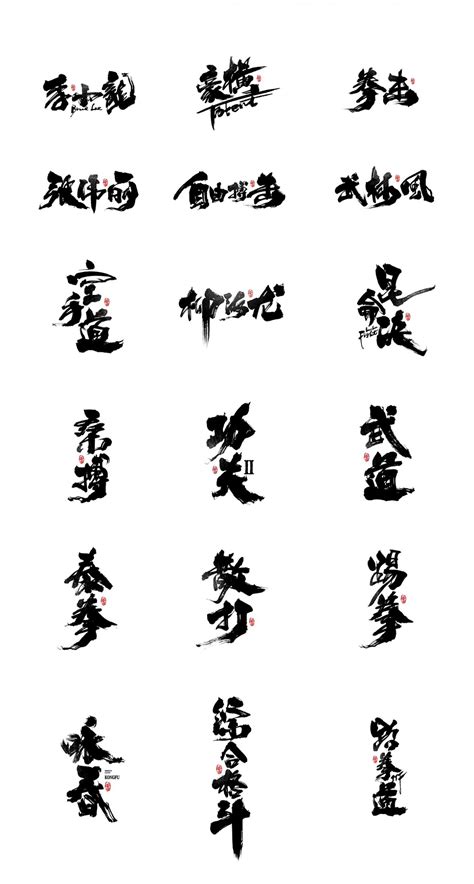 李小龍
Bruce Lee
豪横
拳击
张伟丽
自由搏击
武林風
空手道
柳海龙
昆仑决
Fight
柔搏
功夫II
武道
泰拳
散打
踢拳
咏春
KONGFU
综合格斗
跆拳道